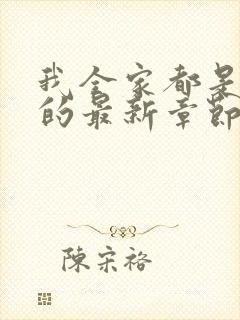 我全家都是
的最新章節
陳宋裕